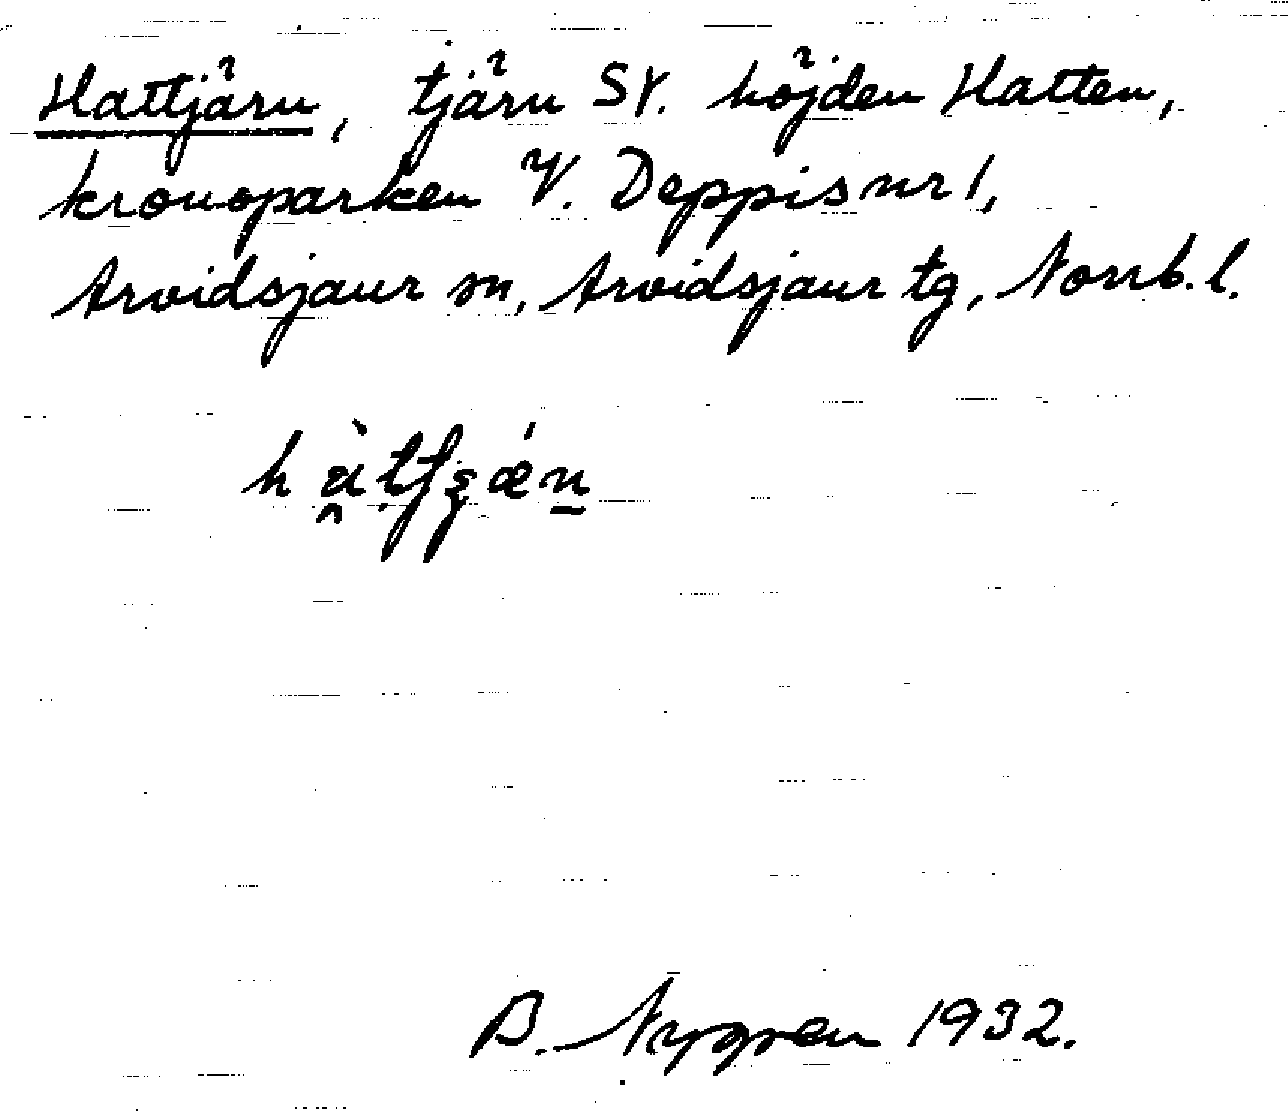 Hattjärn, tjärn SV. höjden Hatten,
kronoparken V. Deppis nr 1,
Arvidsjaur sn, Arvidsjaur tg, Norrb. l.
B. Nygren 1932.